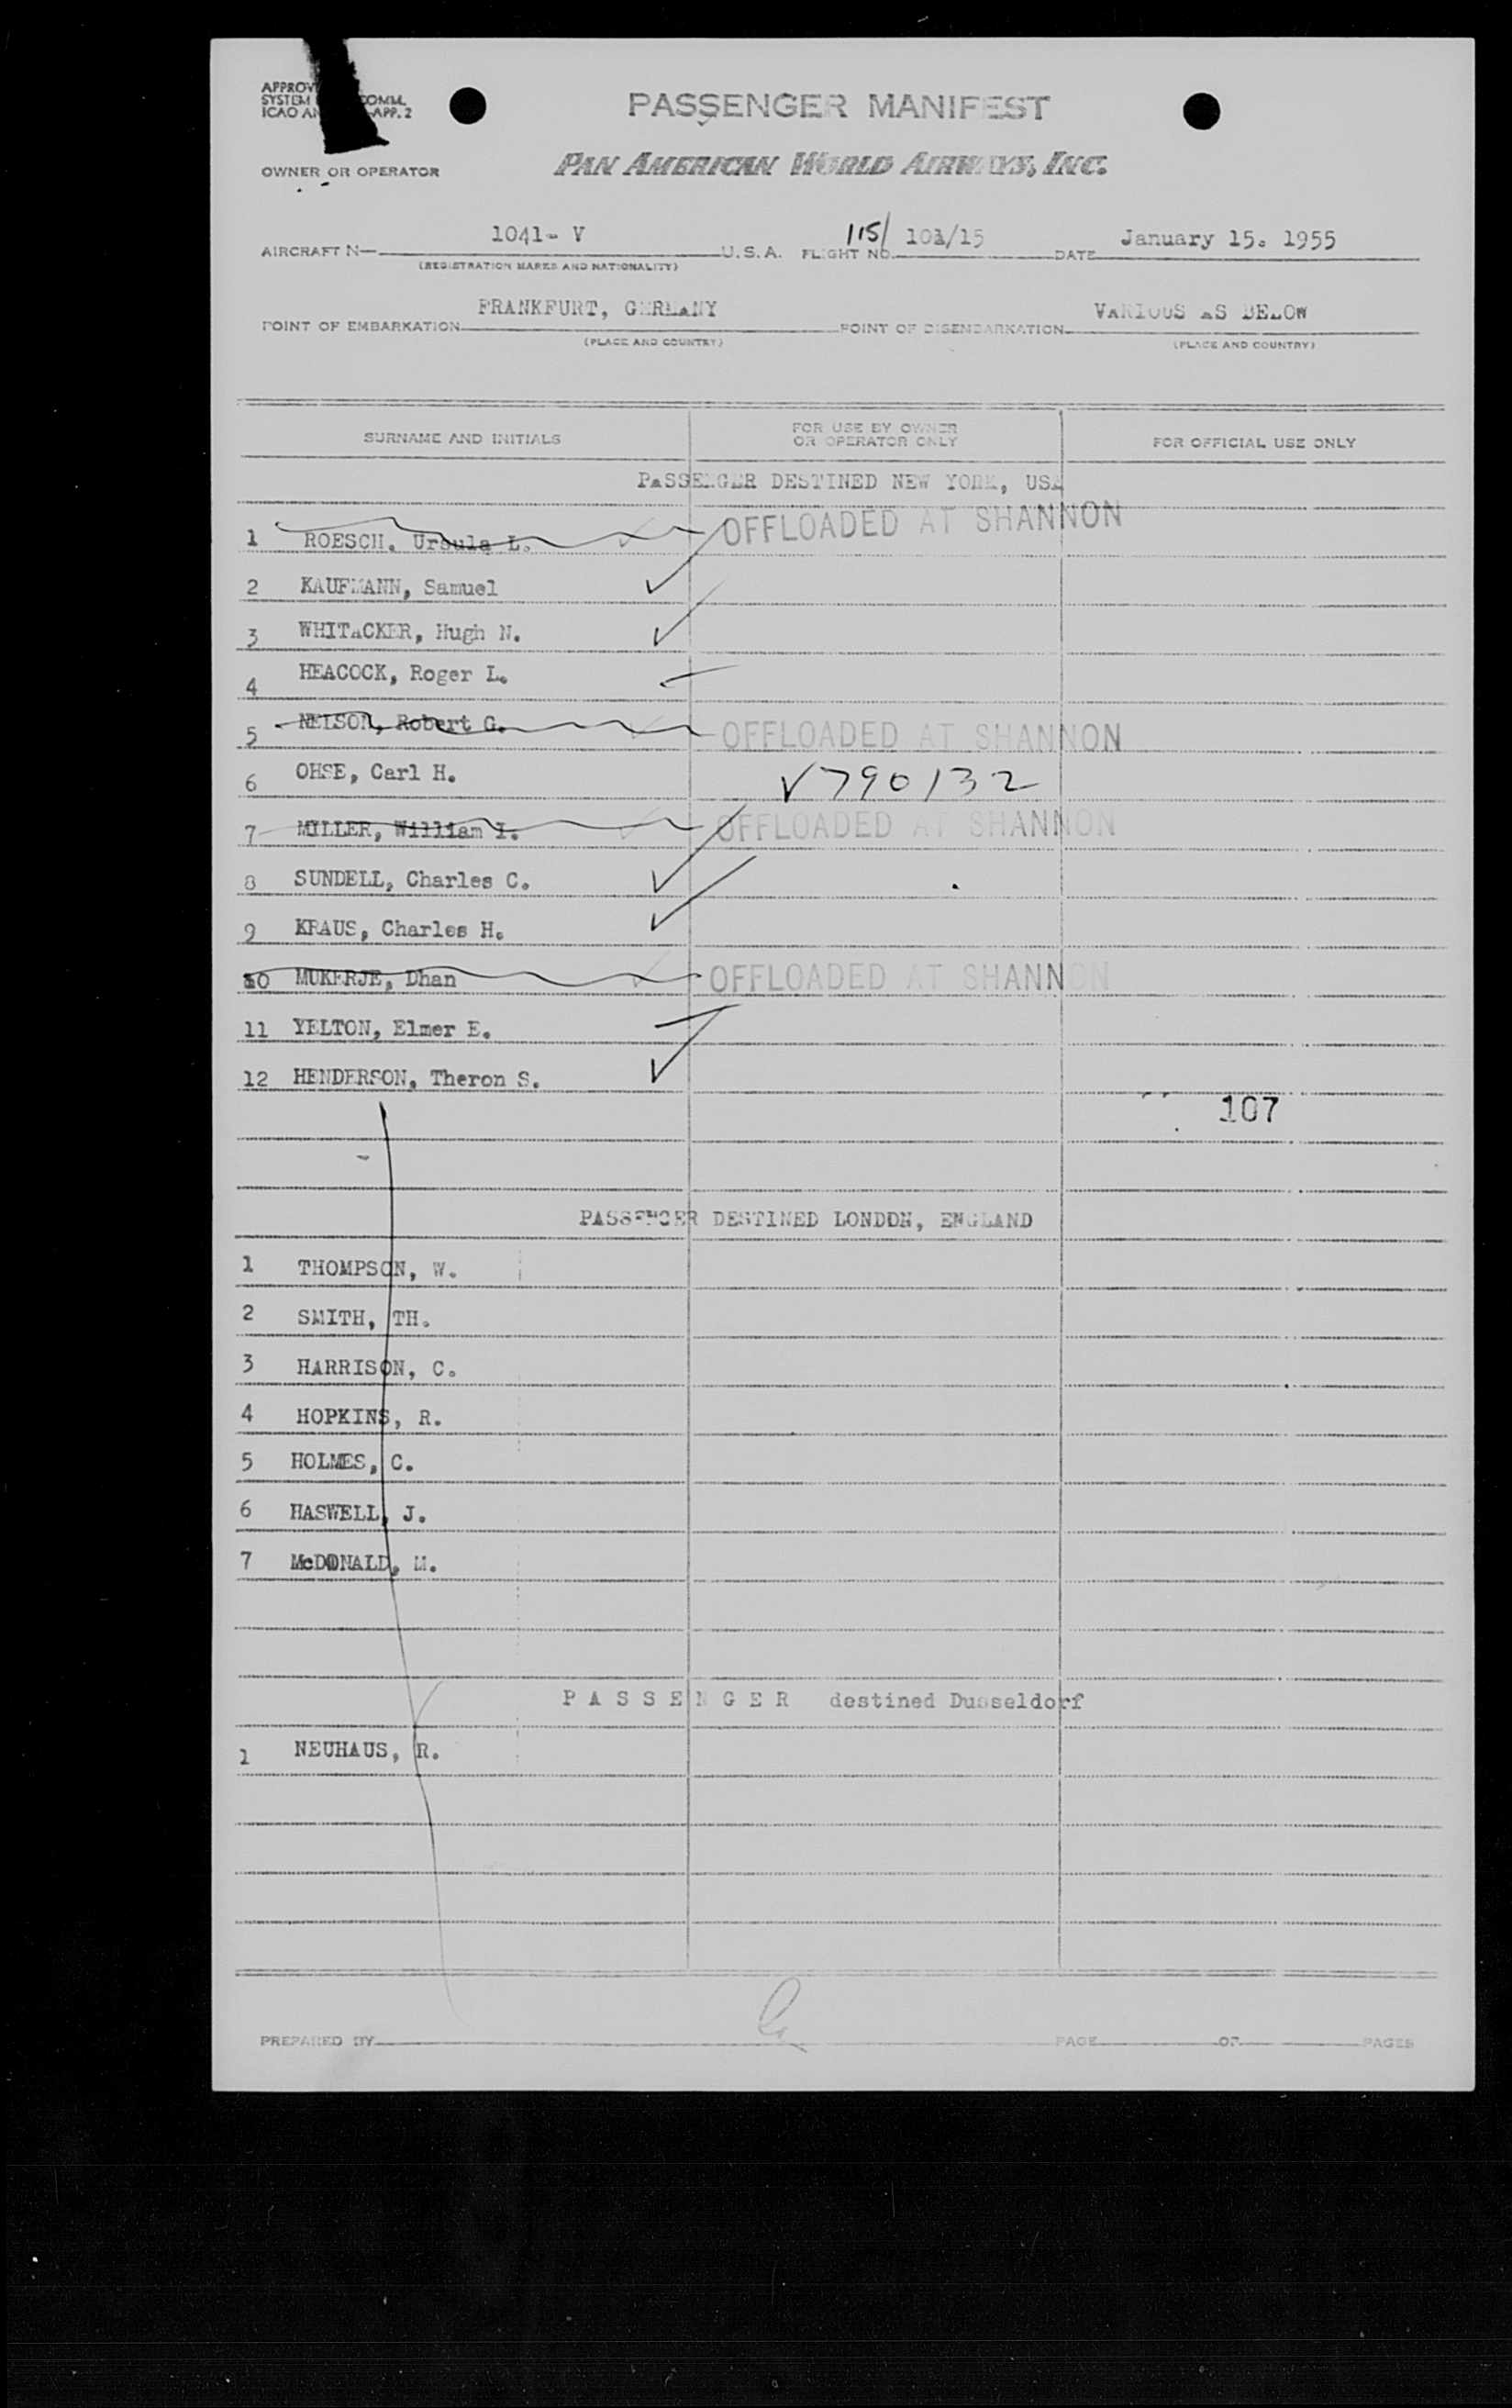 APPROV
SYSTEM COMM.
ICAO AN -APP. 2
PASSENGER MANIFEST
OWNER OR OPERATOR
PAN AMERICAN WORLD AIRWAYS, INC.
AIRCRAFT N— 1041- V U.S.A. FLIGHT NO. 115/ 101/15 DATE January 15. 1955
(REGISTRATION MARKS AND NATIONALITY)
POINT OF EMBARKATION FRANKFURT, GERMANY POINT OF DISEMBARKATION VARIOUS AS BELOW
(PLACE AND COUNTRY) (PLACE AND COUNTRY)
SURNAME AND INITIALS FOR USE BY OWNER OR OPERATOR ONLY FOR OFFICIAL USE ONLY
PASSENGER DESTINED NEW YORK, USA
1 ROESCH. Ursula L. OFFLOADED AT SHANNON
2 KAUFMANN, Samuel
3 WHITACKER, Hugh N.
4 HEACOCK, Roger L.
5 NELSON, Robert G. OFFLOADED AT SHANNON
6 OHSE, Carl H. V790132
7 MILLER, William I. OFFLOADED AT SHANNON
8 SUNDELL, Charles C.
9 KRAUS, Charles H.
10 MUKERJE, Dhan OFFLOADED AT SHANNON
11 YELTON, Elmer E.
12 HENDERSON, Theron S.
107
PASSENGER DESTINED LONDON, ENGLAND
1 THOMPSON, W.
2 SMITH, TH.
3 HARRISON, C.
4 HOPKINS, R.
5 HOLMES, C.
6 HASWELL, J.
7 McDONALD, M.
P A S S E N G E R destined Dusseldorf
1 NEUHAUS, R.
PREPARED BY PAGE OF PAGES